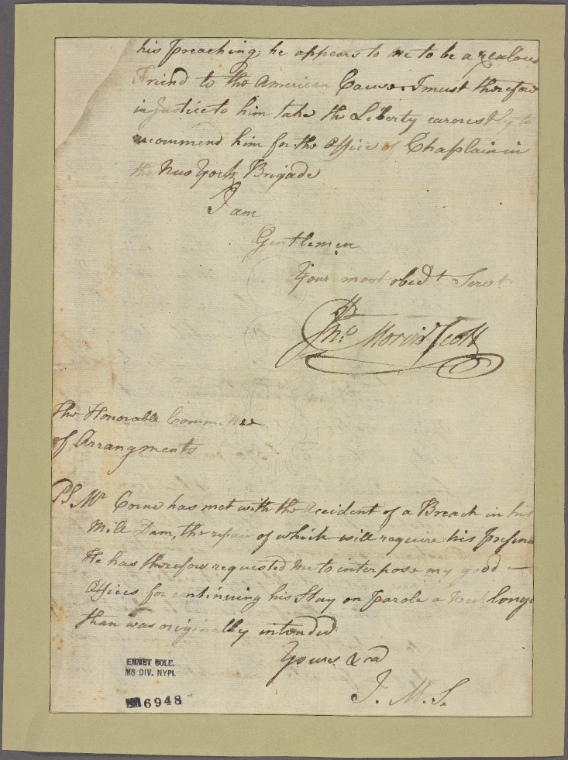 his Preaching; he appears to me to be a zealous
Friend to the American Cause. I must therefore
in Justice to him take the Liberty earnestly to
recommend him for the Office of Chaplain in
the New York Brigade
I am
Gentlemen
Your most obedt Servt
Jno Morin Scott
The Honorable Committee
of Arrangments
PS Mr has met with the Accident of a Breach in his
Mill Dam, the repair of which will require his Presence
He has therefore requested me to interpose my good
Offices for continuing his Stay on parole a week longer
than was originally intended
Yours &ca
J. M. S.
EMMET COLL.
MS DIV. NYPL
6948